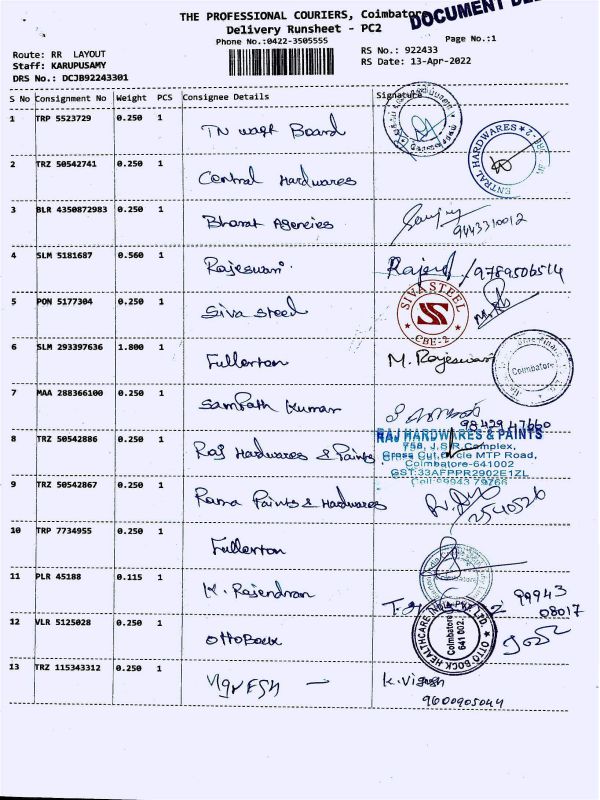 THE PROFESSIONAL COURIERS, Coimbatore
DOCUMENT DEL
Delivery Runsheet - PC2
Phone No.:0422-3505555
Page No.:1
Route: RR LAYOUT
RS No.: 922433
Staff: KARUPUSAMY
RS Date: 13-Apr-2022
DRS No.: DCJB92243301
S No Consignment No Weight PCS Consignee Details Signature
1 TRP 5523729 0.250 1 TN waqf Board
2 TRZ 50542741 0.250 1 Central Hardwares
ENTRAL HARDWARES
3 BLR 4350872983 0.250 1 Bharat Agencies
9443310012
4 SLM 5181687 0.560 1 Rajeswari
/9789506514
5 PON 5177304 0.250 1 Siva Steel
SIVA STEEL
SS
CBE-2
6 SLM 293397636 1.800 1 Fullerton M. Rajeswari
Coimbatore
7 MAA 288366100 0.250 1 Sampath Kumar
9842947660
8 TRZ 50542886 0.250 1 Raj Hardwares & Paints
RAJ HARDWARES & PAINTS
758, J.S.R Complex,
Cross Cut, Circle MTP Road,
Coimbatore-641002
GST:33AFPPR2902E1ZL
Cell:99943 79766
9 TRZ 50542867 0.250 1 Rama Paints & Hardwares
2540526
10 TRP 7734955 0.250 1 Fullerton
Coimbatore
11 PLR 45188 0.115 1 K. Rajendran
99943
08017
12 VLR 5125028 0.250 1 Ottobock
OTTO BOCK HEALTHCARE INDIA PVT. LTD.
Coimbatore
641 002.
13 TRZ 115343312 0.250 1 Vignesh - K. Vignesh
9600905044